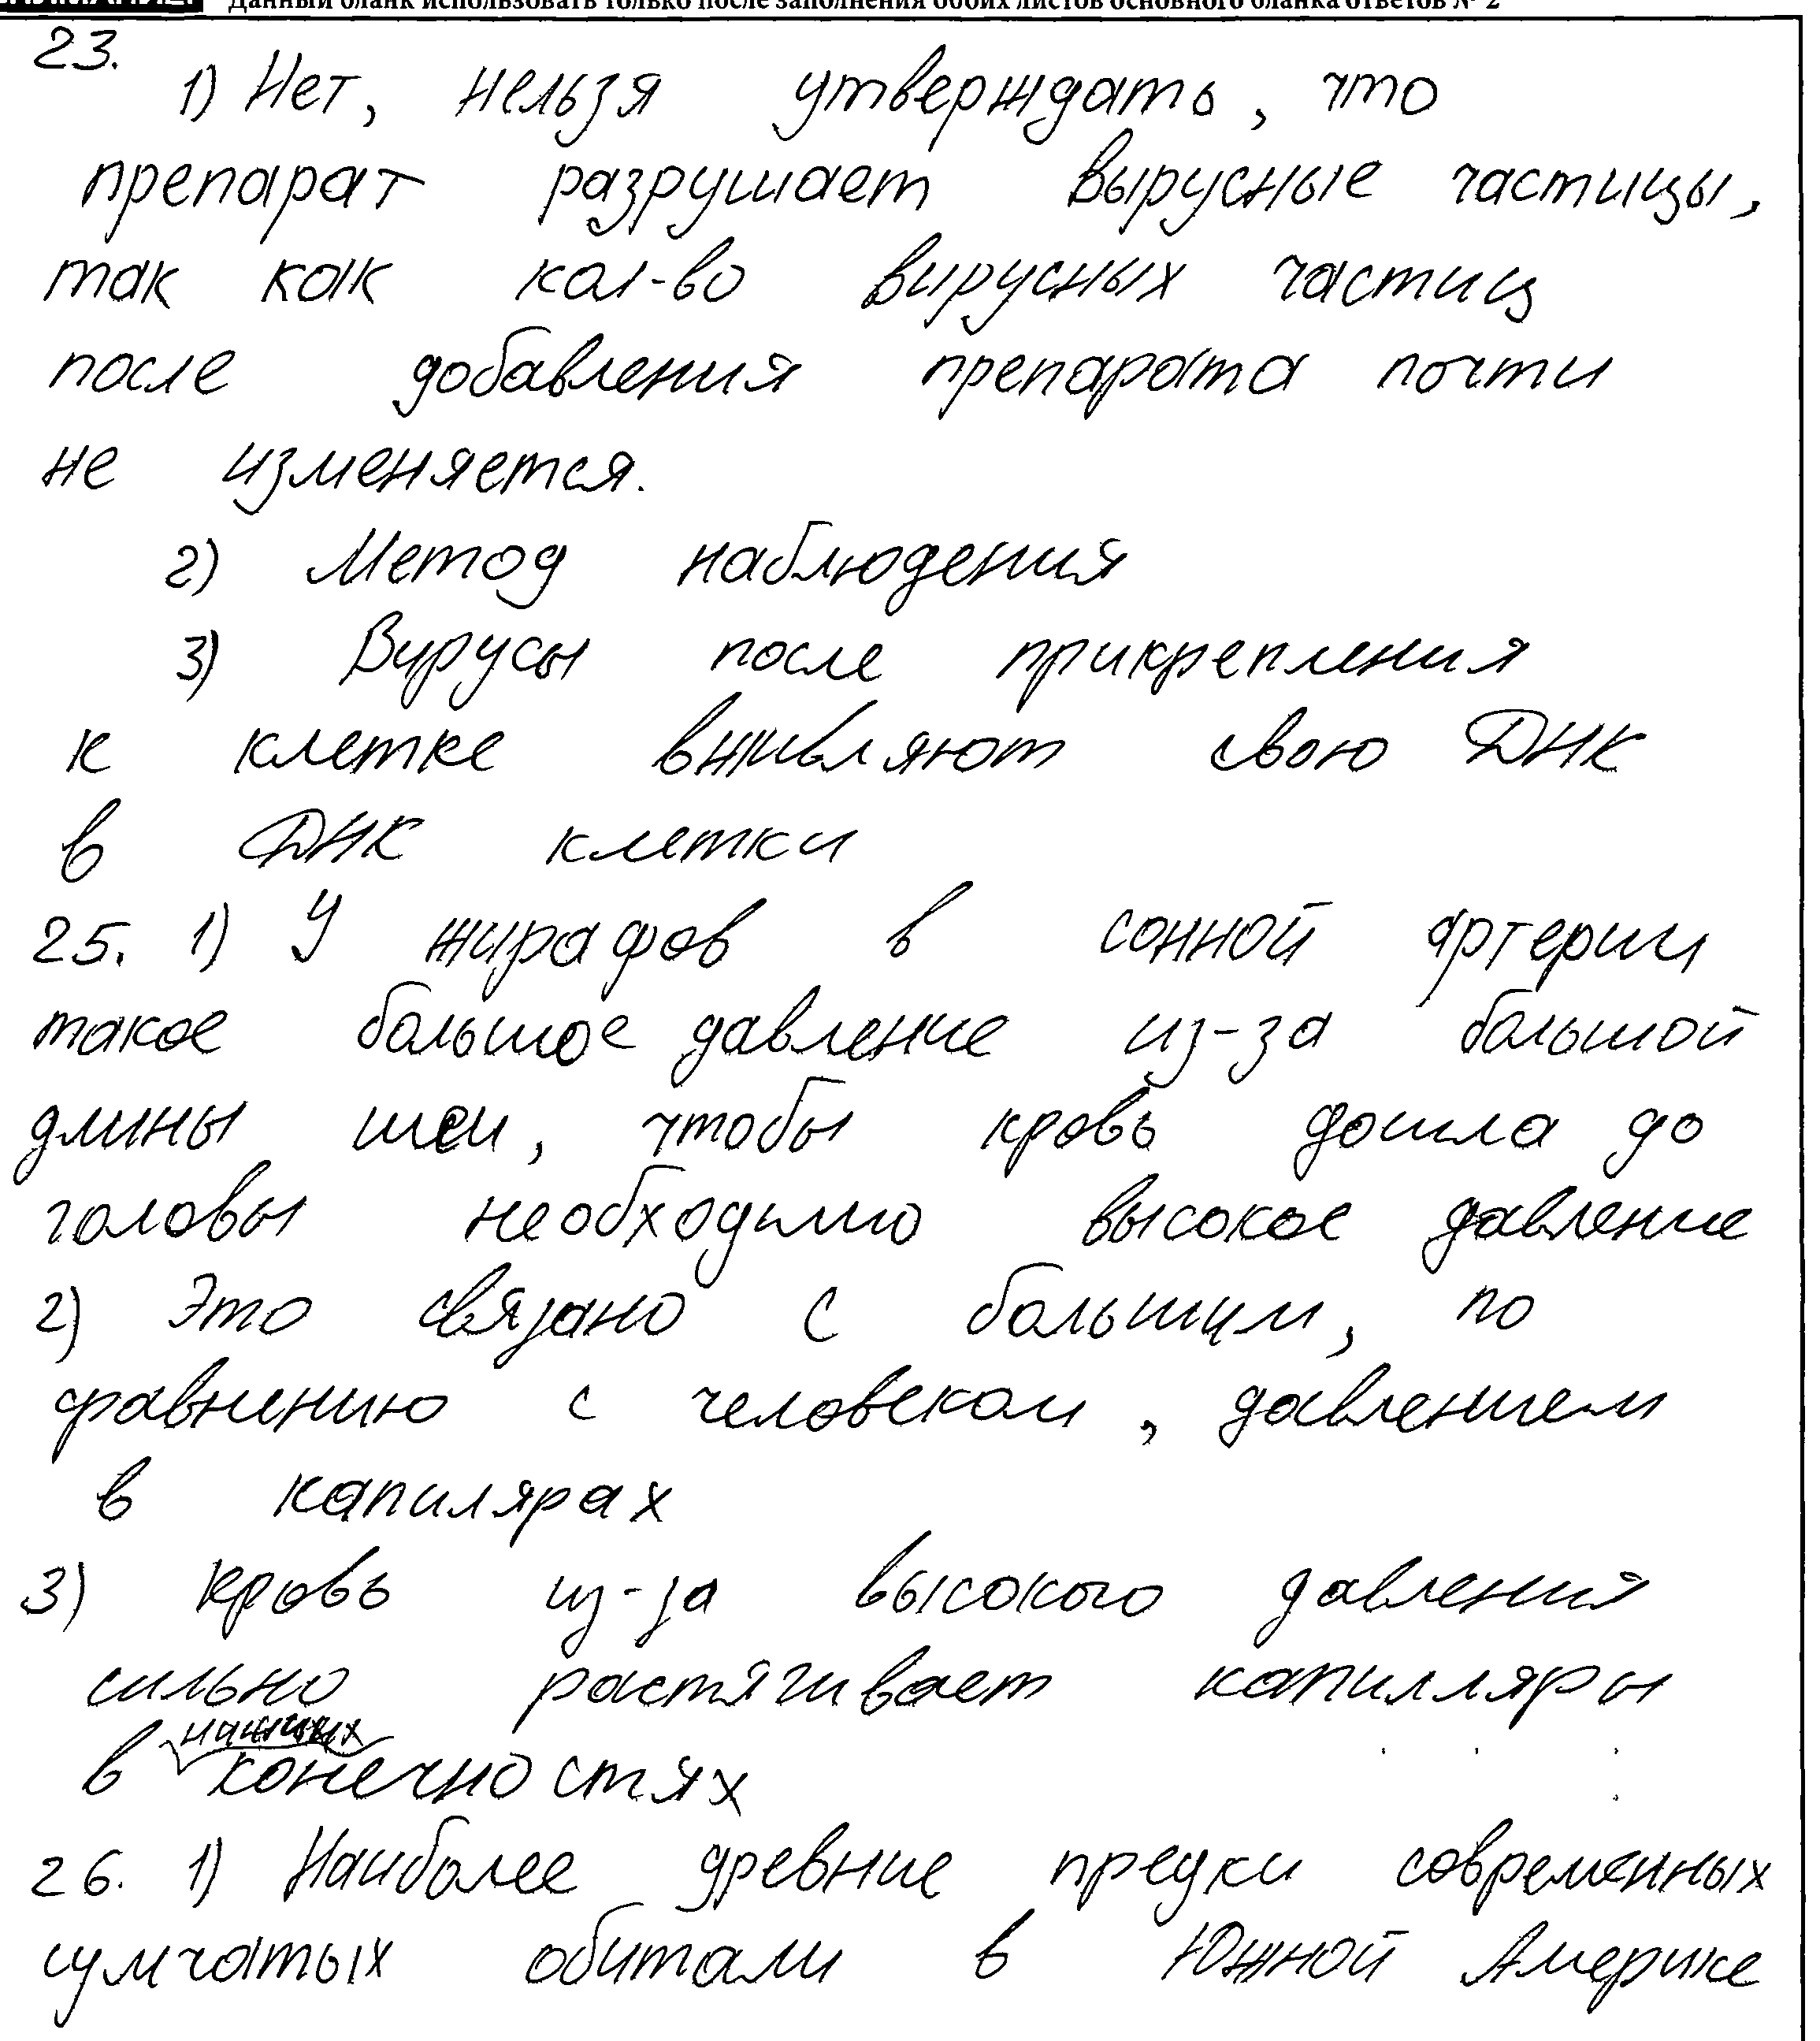 Данный бланк использовать только после заполнения обоих листов основного бланка ответов № 2
23.
1) Нет, нельзя утверждать, что
препарат разрушает вырусные частицы,
так как кол-во вирусных частиц
после добавления препарата почти
не изменяется.
2) Метод наблюдения
3) Вирусы после прикрепления
к клетке вживляют свою ДНК
в ДНК клетки
25. 1) У жирафов в сонной артерии
такое большое давление из-за большой
длины шеи, чтобы кровь дошла до
головы необходимо высокое давление
2) Это связано с большим, по
сравнению с человеком, давлением
в капилярах
3) Кровь из-за высокого давления
сильно растягивает капилляры
нижних
в конечностях
26. 1) Наиболее древние предки современных
сумчатых обитали в Южной Америке